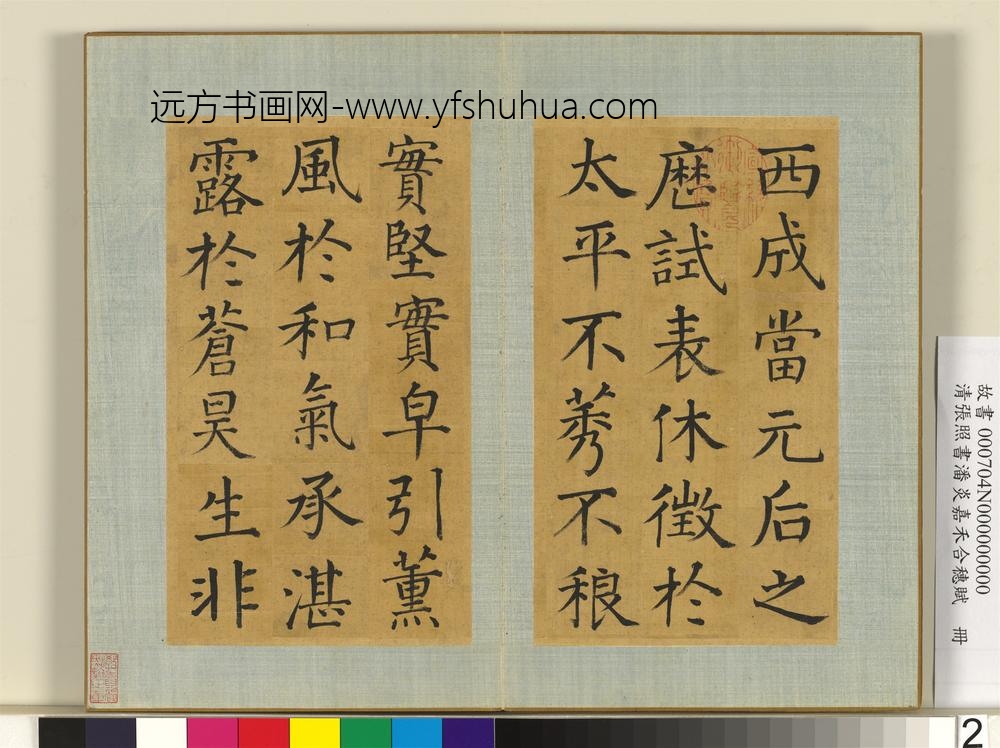 远方书画网-www.yfshuhua.com
西成當元后之
歷試表休徴於
太平不莠不稂
實堅實皁引薫
風於和氣承湛
露於蒼昊生非
故書 000704N000000000
清張照書潘炎嘉禾合穗賦 冊
2